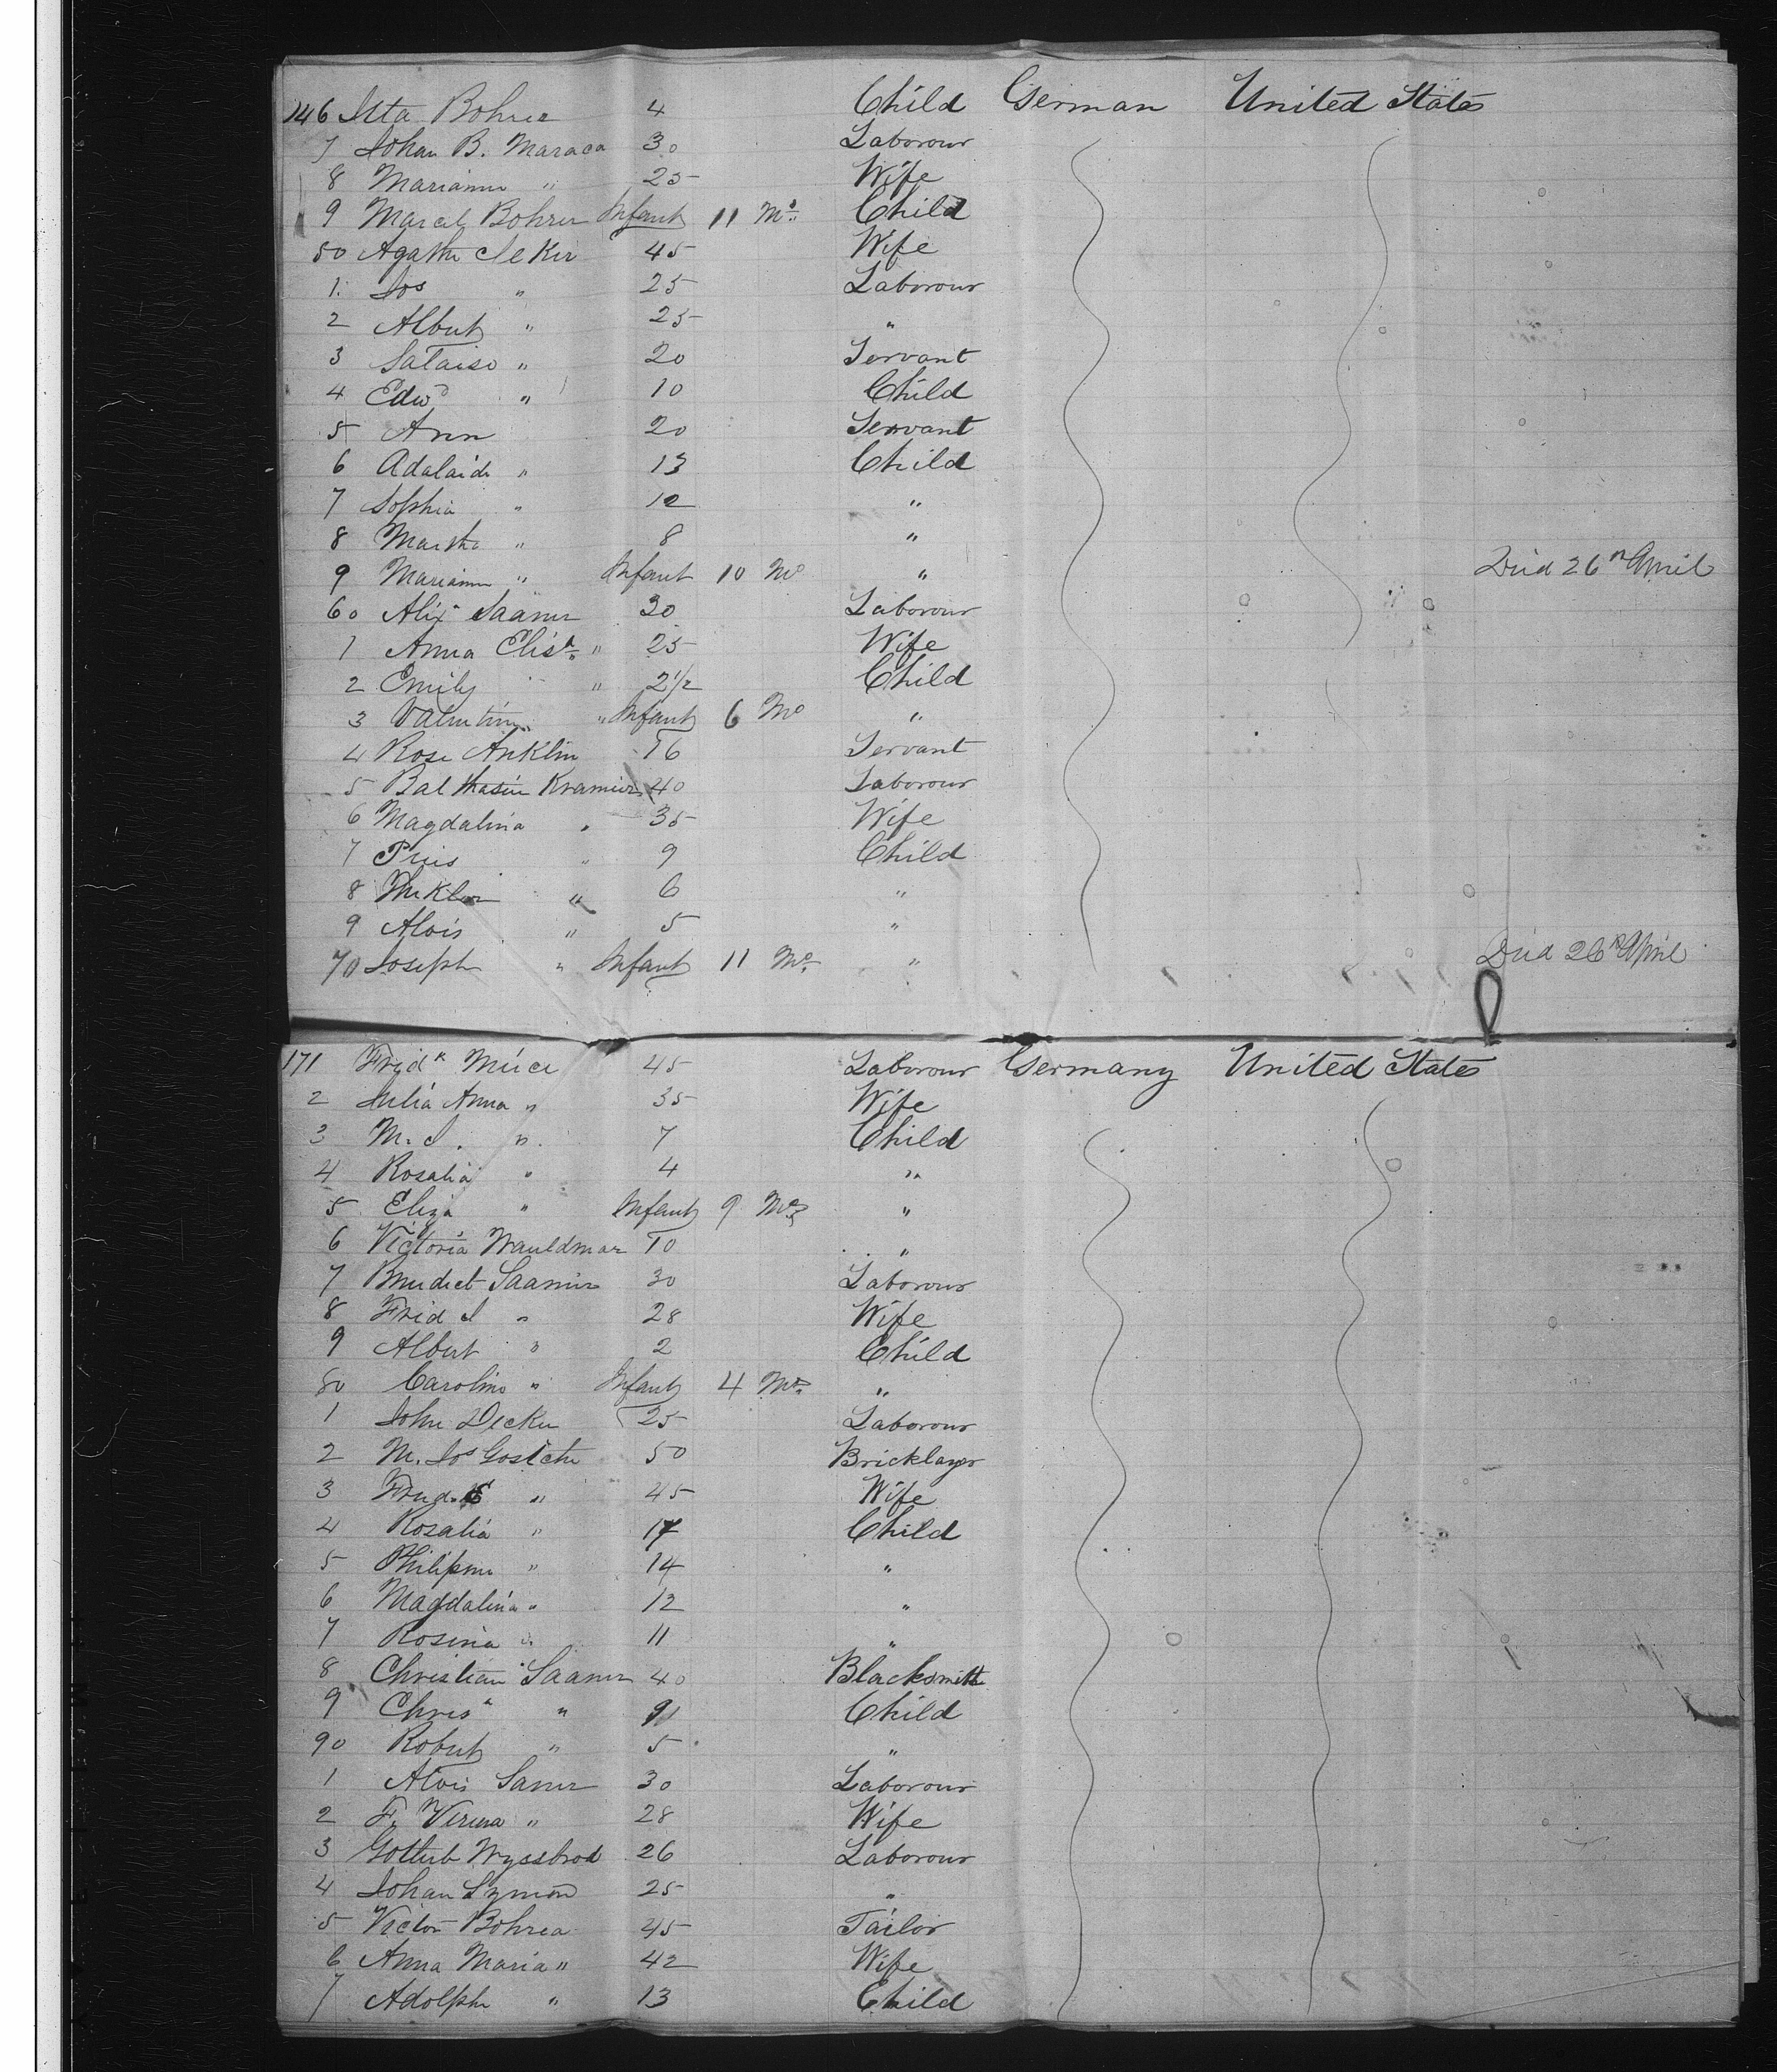 146 Itta Bohrer 4 Child German United States
7 Johan B. Maraca 30 Laborour
8 Marianne " 25 Wife
9 Marcel Bohrer Infant 11 Mos. Child
50 Agathe Seker 45 Wife
1 Jos " 25 Laborour
2 Albert " 25 "
3 " 20 Servant
4 Edwd " 10 Child
5 Ann 20 Servant
6 Adalaide " 13 Child
7 Sophia " 12 "
8 Martha " 8 "
9 Marianne " Infant 10 Mo " Died 26th April
60 Alixr Saaner 30 Laborour
1 Anna Elisth. " 25 Wife
2 Emily " 2 1/2 Child
3 Valentine " Infant 6 Mo "
4 Rose Anklin 16 Servant
5 Balthasin Kramier 40 Laborour
6 Magdalina " 35 Wife
7 Pius " 9 Child
8 " 6 "
9 Alois " 5 "
70 Joseph " Infant 11 Mos. " Died 26th April
171 Fredk Meice 45 Laborour Germany United States
2 Julia Anna " 35 Wife
3 M. J. " 7 Child
4 Rosalia " 4 "
5 Eliza " Infant 9 Mos "
6 Victoria Wauldmar 10 "
7 Benedict Saanier 30 Laborour
8 Fred J " 28 Wife
9 Albert " 2 Child
80 Caroline " Infant 4 Mos. "
1 John Decker 25 Laborour
2 M. Jos Gostche 50 Bricklayer
3 Fred. E " 45 Wife
4 Rosalia " 17 Child
5 Philipine " 14 "
6 Magdalina " 12
7 Rosina " 11 "
8 Christian Saaner 40 Blacksmith
9 Chrisn " 9 Child
90 Robert " 5 "
1 Alois Saner 30 Laborour
2 F. Verena " 28 Wife
3 Gotlieb Wyssbrod 26 Laborour
4 Johan Symon 25 "
5 Victor Bohrea 45 Tailor
6 Anna Maria " 42 Wife
7 Adolph " 13 Child